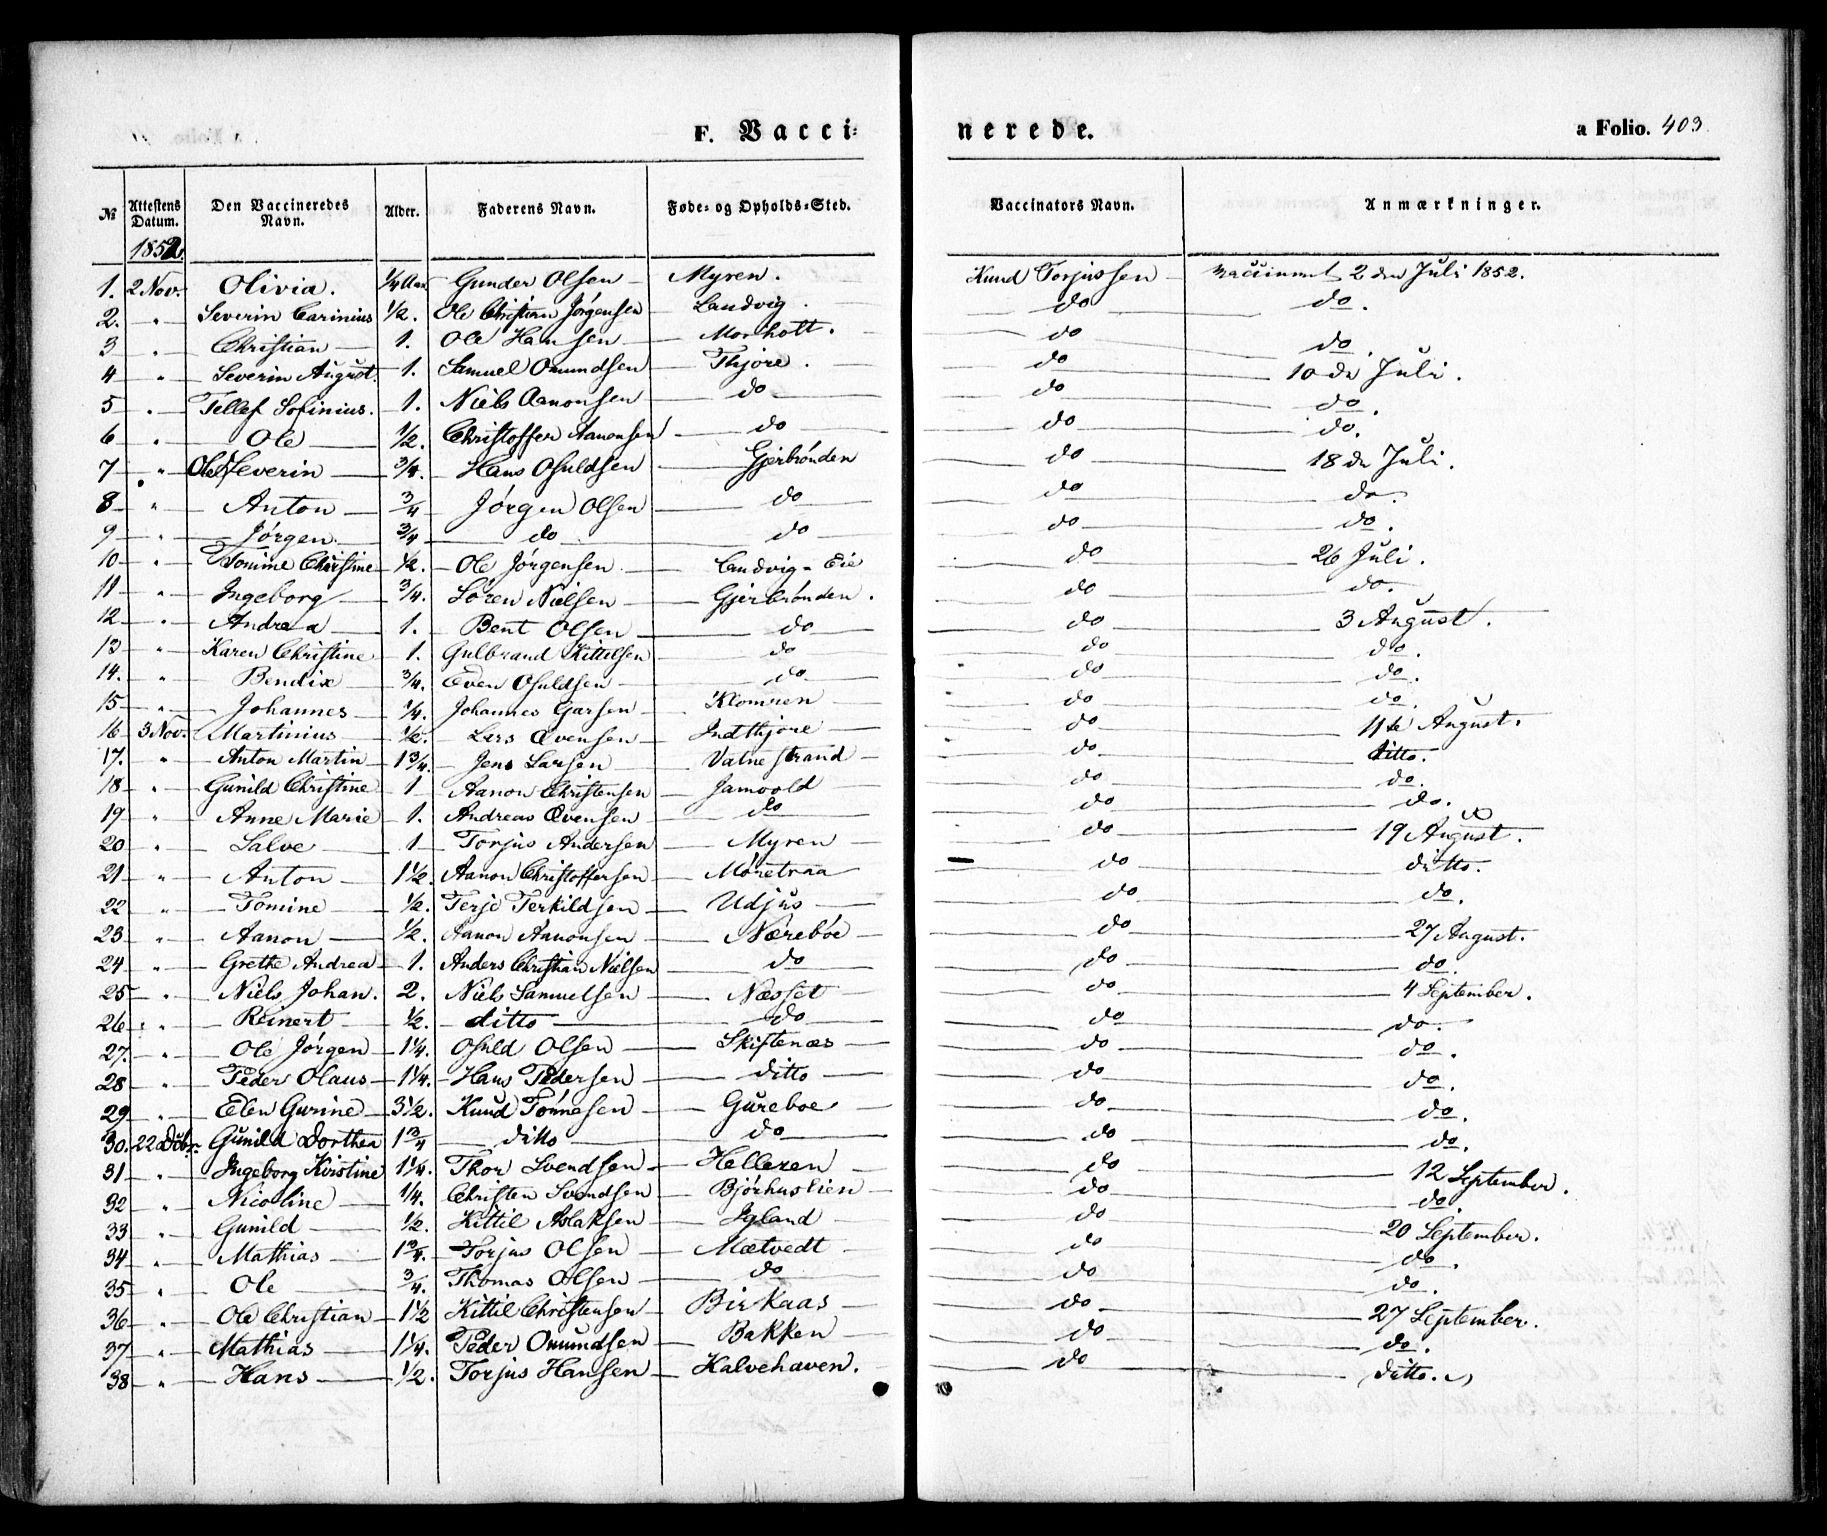 F. Vacci= nerede. a Folio. 403.
№ Attestens Datum. Den Vaccineredes Navn. Alder. Faderens Navn. Føde- og Opholds-Sted. Vaccinators Navn. Anmærkninger.
1852.
1. 2 Nov. Olivia. 1/4 Aar. Gunder Olsen Myren. Knud Torjussen vaccineret 2 den Juli 1852.
2. " Severin Carinius 1/2. Ole Christian Jørgensen Landvig. do do.
3 " Christian 1. Ole Hansen Morholt. do do.
4 " Severin August. 1. Samuel Omundsen Thjøre. do 10 de Juli.
5 " Tellef Sofinius. 1. Niels Aanonsen do do do.
6 " Ole 1/2. Christoffer Aanonsen do do do.
7 " Ole Severin 3/4. Hans Osuldsen Gjerbrønden do 18 de Juli.
8 " Anton 3/4 Jørgen Olsen do do do.
9 " Jørgen. 3/4 do do do do.
10 " Tomine Christine 1/2. Ole Jørgensen Landvig-Eie do 26 Juli.
11 " Ingeborg 3/4. Søren Nielsen Gjerbrønden. do do.
12 " Andrea 1. Bent Olsen do do 3 August.
13 " Karen Christine 1. Gulbrand Kittelsen do do do.
14. " Bendix 3/4. Even Osuldsen do do do.
15 " Johannes 1/4. Johannes Garsen Klomren do do.
16 3 Nov. Martinius 1/2. Lars Evensen Indthjøre do 11te August.
17. " Anton Martin 1 3/4. Jens Larsen Vatnestrand do ditto.
18 " Gunild Christine 1 Aanon Christensen Jamvold do do.
19 " Anne Marie 1. Andreas Evensen do do do.
20 " Salve 1 Torjus Andersen Myren do 19 August.
21 " Anton 1 1/2. Aanon Christoffersen Mønetraa do ditto.
22 " Tomine 1/2. Terje Terkildsen Udjus do do.
23 " Aanon 1/2. Aanon Aanonsen Nærebøe do 27 August.
24 " Grethe Andrea 1. Anders Christian Nielsen do do do.
25 " Niels Johan. 2. Niels Samuelsen Næsset do 4 September.
26 " Reinert 1/2. ditto do do do.
27. " Ole Jørgen 1 1/4. Osuld Olsen Skiftenæs do do.
28 " Peder Olaus 1 1/4. Hans Pedersen ditto do do.
29 " Elen Gurine 3 1/2. Knud Tønnesen Gureboe do do.
30. 22 Dcbr. Gunild Dorthea 1 3/4 ditto do do do.
31 " Ingeborg Kristine 1 1/4. Thor Svendsen Helleren do 12 September.
32 " Nicoline 1/4. Christen Svendsen Bjørhuslien do do.
33 " Gunild 1/2. Kittil Aslaksen Igland do 20 September.
34 " Mathias 1 3/4. Torjus Olsen Mætvedt do do.
35 " Ole 3/4. Thomas Olsen do do do.
36 " Ole Christian 1 1/2 Kittil Christensen Birkaas do 27 September.
37 " Mathias 1 1/4. Peder Omundsen Bakken do do.
38 " Hans 1/2. Torjus Hansen Kalvehaven. do ditto.